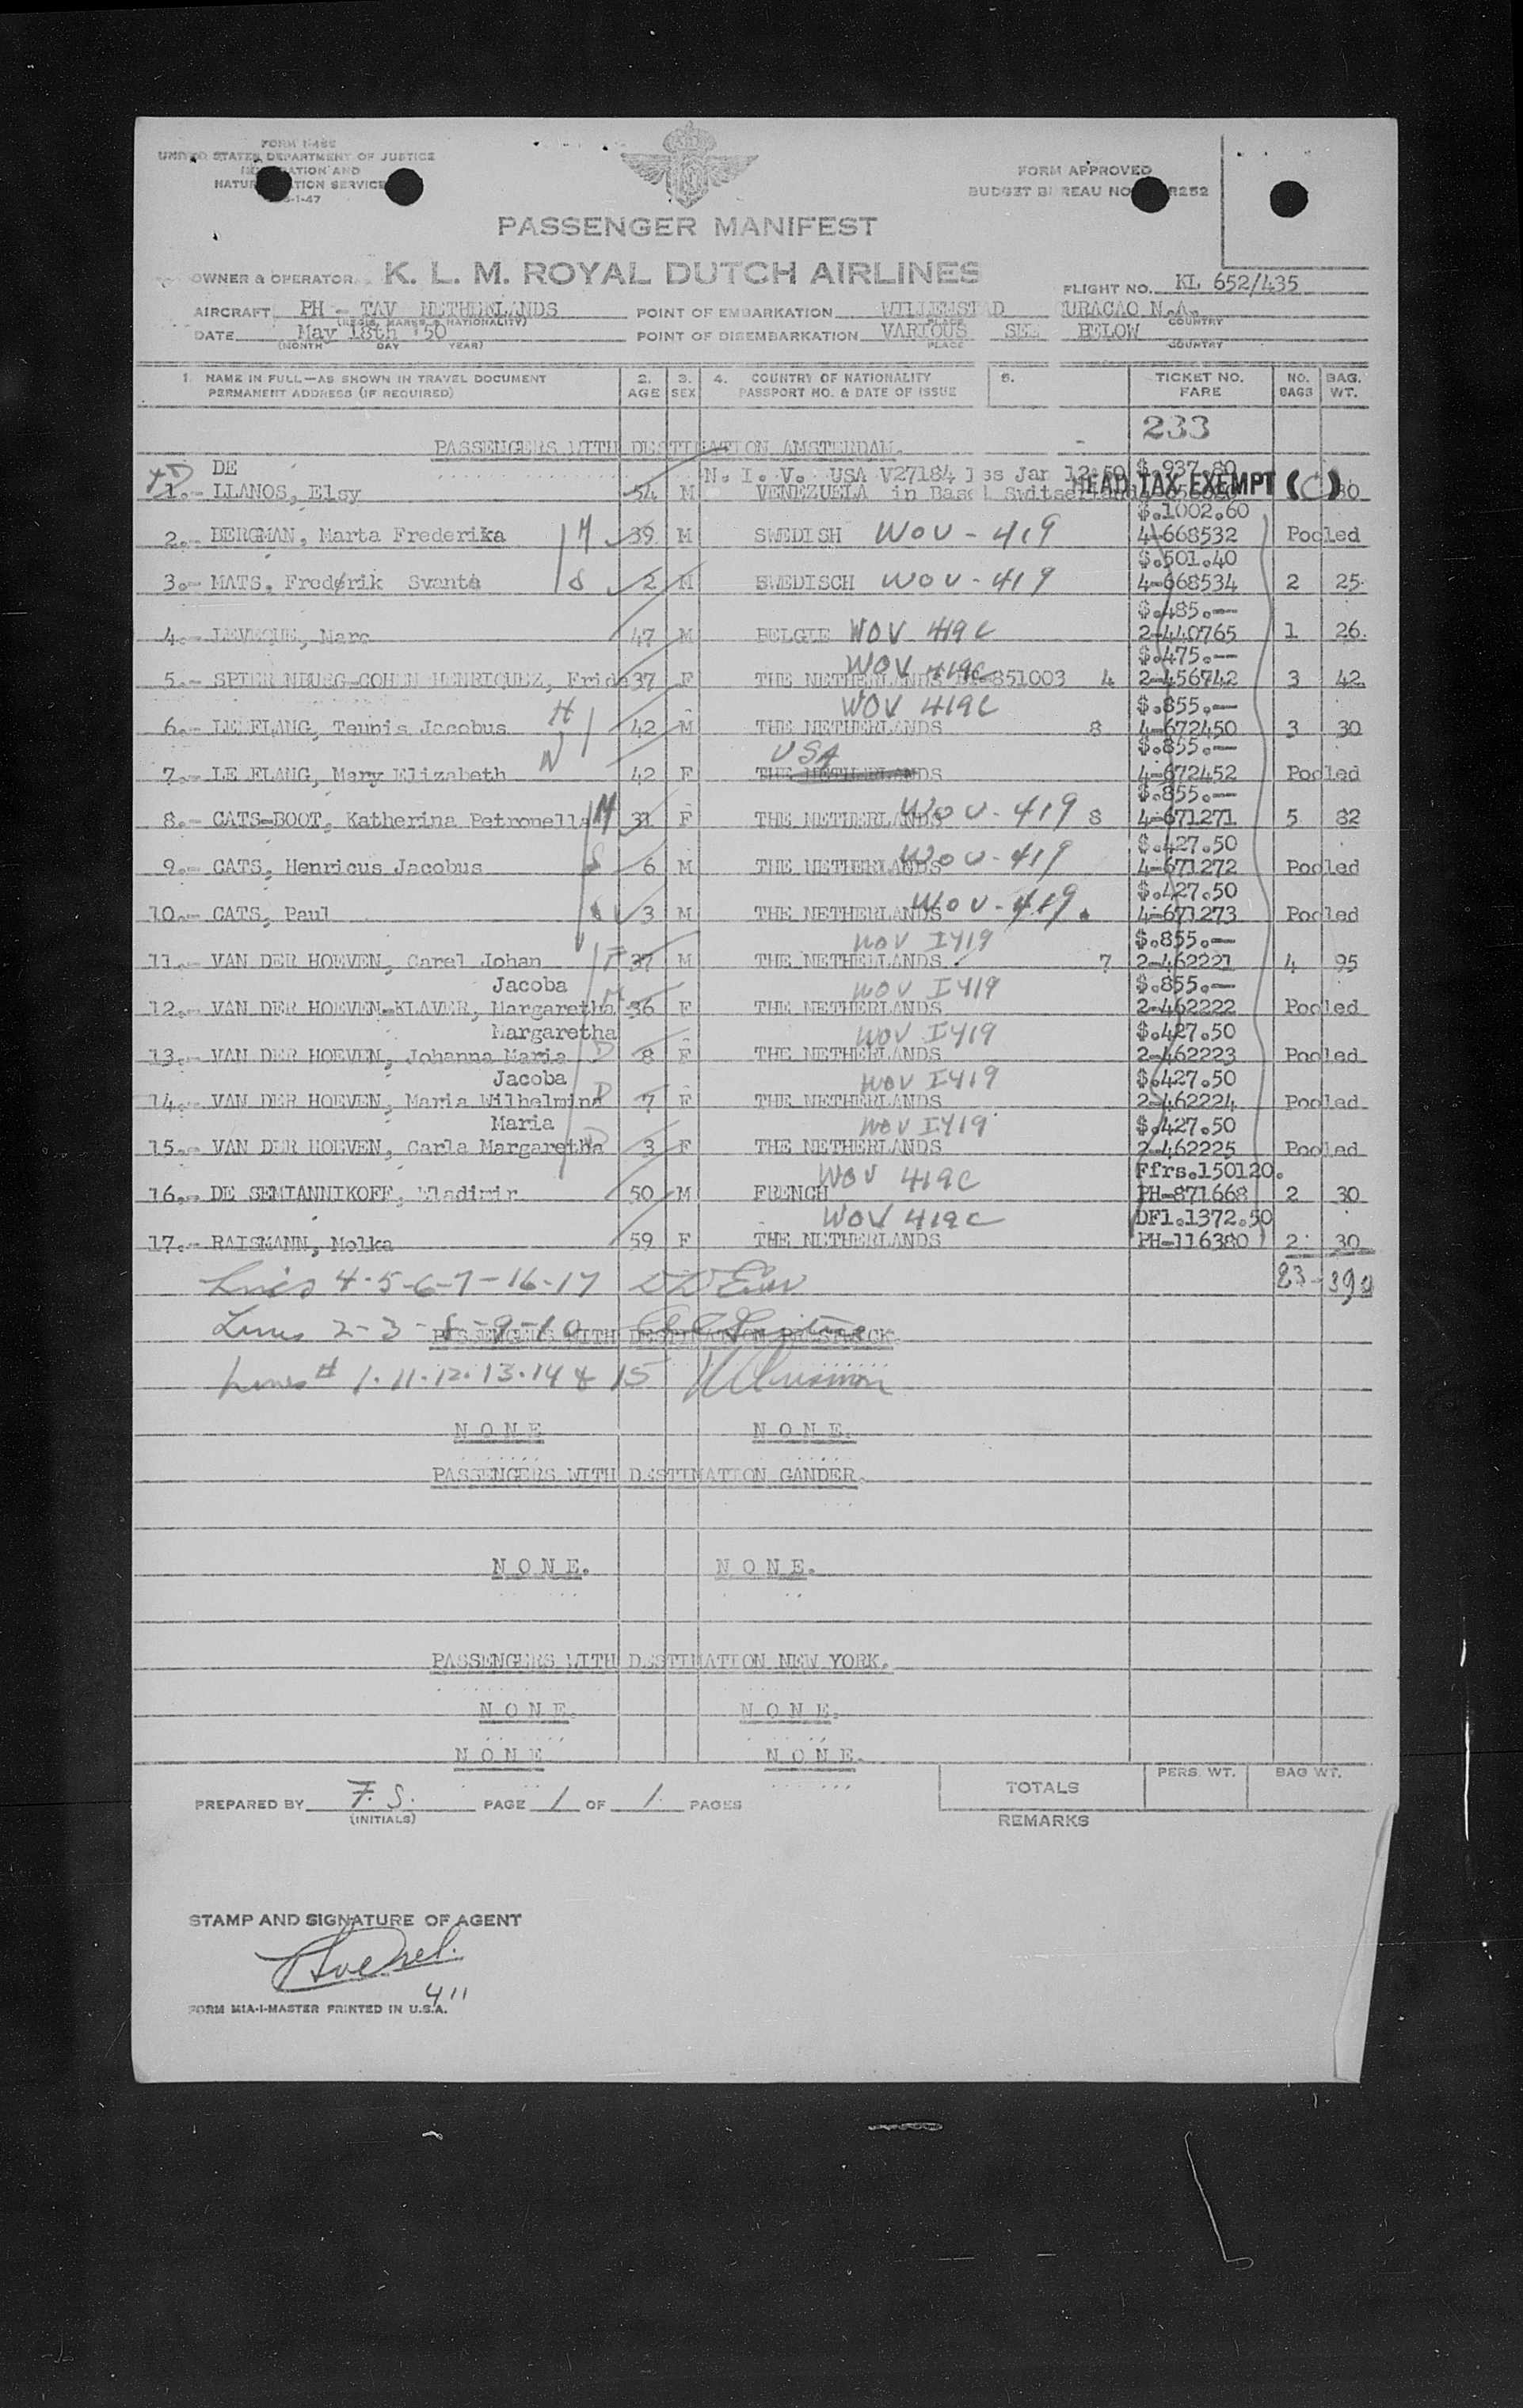 FORM I-466
UNITED STATES DEPARTMENT OF JUSTICE
IMMIGRATION AND
NATURALIZATION SERVICE
-1-47
FORM APPROVED
BUDGET BUREAU NO. R252
PASSENGER MANIFEST
OWNER & OPERATOR K. L. M. ROYAL DUTCH AIRLINES
FLIGHT NO. KL 652/435
AIRCRAFT PH - TAV NETHERLANDS POINT OF EMBARKATION WILLEMSTAD CURACAO N.A.
(REGIS. MARKS & NATIONALITY) PLACE COUNTRY
DATE May 18th '50 POINT OF DISEMBARKATION VARIOUS SEE BELOW
(MONTH DAY YEAR) PLACE COUNTRY
1. NAME IN FULL—AS SHOWN IN TRAVEL DOCUMENT 2. 3. 4. COUNTRY OF NATIONALITY 5. TICKET NO. NO. BAG.
PERMANENT ADDRESS (IF REQUIRED) AGE SEX PASSPORT NO. & DATE OF ISSUE FARE BAGS WT.
233
PASSENGERS WITH DESTINATION AMSTERDAM.
DE N. I. V. USA V27184 Iss Jan 12-50 $.937.80
1.- LLANOS, Elsy 54 M VENEZUELA in Basel Switserland HEAD TAX EXEMPT (C) 30
$.1002.60
2.- BERGMAN, Marta Frederika M 39 M SWEDISH WOV - 419 4-668532 Pooled
$.501.40
3.- MATS, Frederik Svante S 2 M SWEDISCH WOV - 419 4-668534 2 25
$.485.--
4.- LEVEQUE, Marc 47 M BELGIE WOV 419C 2-440765 1 26.
WOV 419C $.475.--
5.- SPIERENBURG-COHEN HENRIQUEZ, Frida 37 F THE NETHERLANDS 851003 4 2-456742 3 42
WOV 419C $.855.--
6.- LE FLANG, Teunis Jacobus H 42 M THE NETHERLANDS 8 4-672450 3 30
USA $.855.--
7.- LE FLANG, Mary Elizabeth W 42 F THE NETHERLANDS 4-672452 Pooled
$.855.--
8.- CATS-BOOT, Katherina Petronella M 31 F THE NETHERLANDS WOV - 419 8 4-671271 5 82
$.427.50
9.- CATS, Henricus Jacobus S 6 M THE NETHERLANDS WOV - 419 4-671272 Pooled
$.427.50
10.- CATS, Paul S 3 M THE NETHERLANDS WOV - 419 4-671273 Pooled
WOV I419 $.855.--
11.- VAN DER HOEVEN, Carel Johan F 37 M THE NETHERLANDS 7 2-462221 4 95
Jacoba WOV I419 $.855.--
12.- VAN DER HOEVEN-KLAVER, Margaretha M 36 F THE NETHERLANDS 2-462222 Pooled
Margaretha WOV I419 $.427.50
13.- VAN DER HOEVEN, Johanna Maria D 8 F THE NETHERLANDS 2-462223 Pooled
Jacoba WOV I419 $.427.50
14.- VAN DER HOEVEN, Maria Wilhelmina D 7 F THE NETHERLANDS 2-462224 Pooled
Maria WOV I419 $.427.50
15.- VAN DER HOEVEN, Carla Margaretha D 3 F THE NETHERLANDS 2-462225 Pooled
WOV 419C Ffrs.150120.
16.- DE SEMIANNIKOFF, Wladimir 50 M FRENCH PH-871668 2 30
WOV 419C DFl.1372.50
17.- RAISMANN, Molka 59 F THE NETHERLANDS PH-116380 2 30
Lines 4-5-6-7-16-17 23-390
Lines 2-3-8-9-10
PASSENGERS WITH DESTINATION PRESTWICK.
Lines # 1.11.12.13.14 & 15
NONE NONE.
PASSENGERS WITH DESTINATION GANDER.
NONE. NONE.
PASSENGERS WITH DESTINATION NEW YORK.
NONE. NONE.
NONE NONE.
PREPARED BY F. S. PAGE 1 OF 1. PAGES
(INITIALS)
TOTALS PERS. WT. BAG WT.
REMARKS
STAMP AND SIGNATURE OF AGENT
411
FORM MIA-I-MASTER PRINTED IN U.S.A.